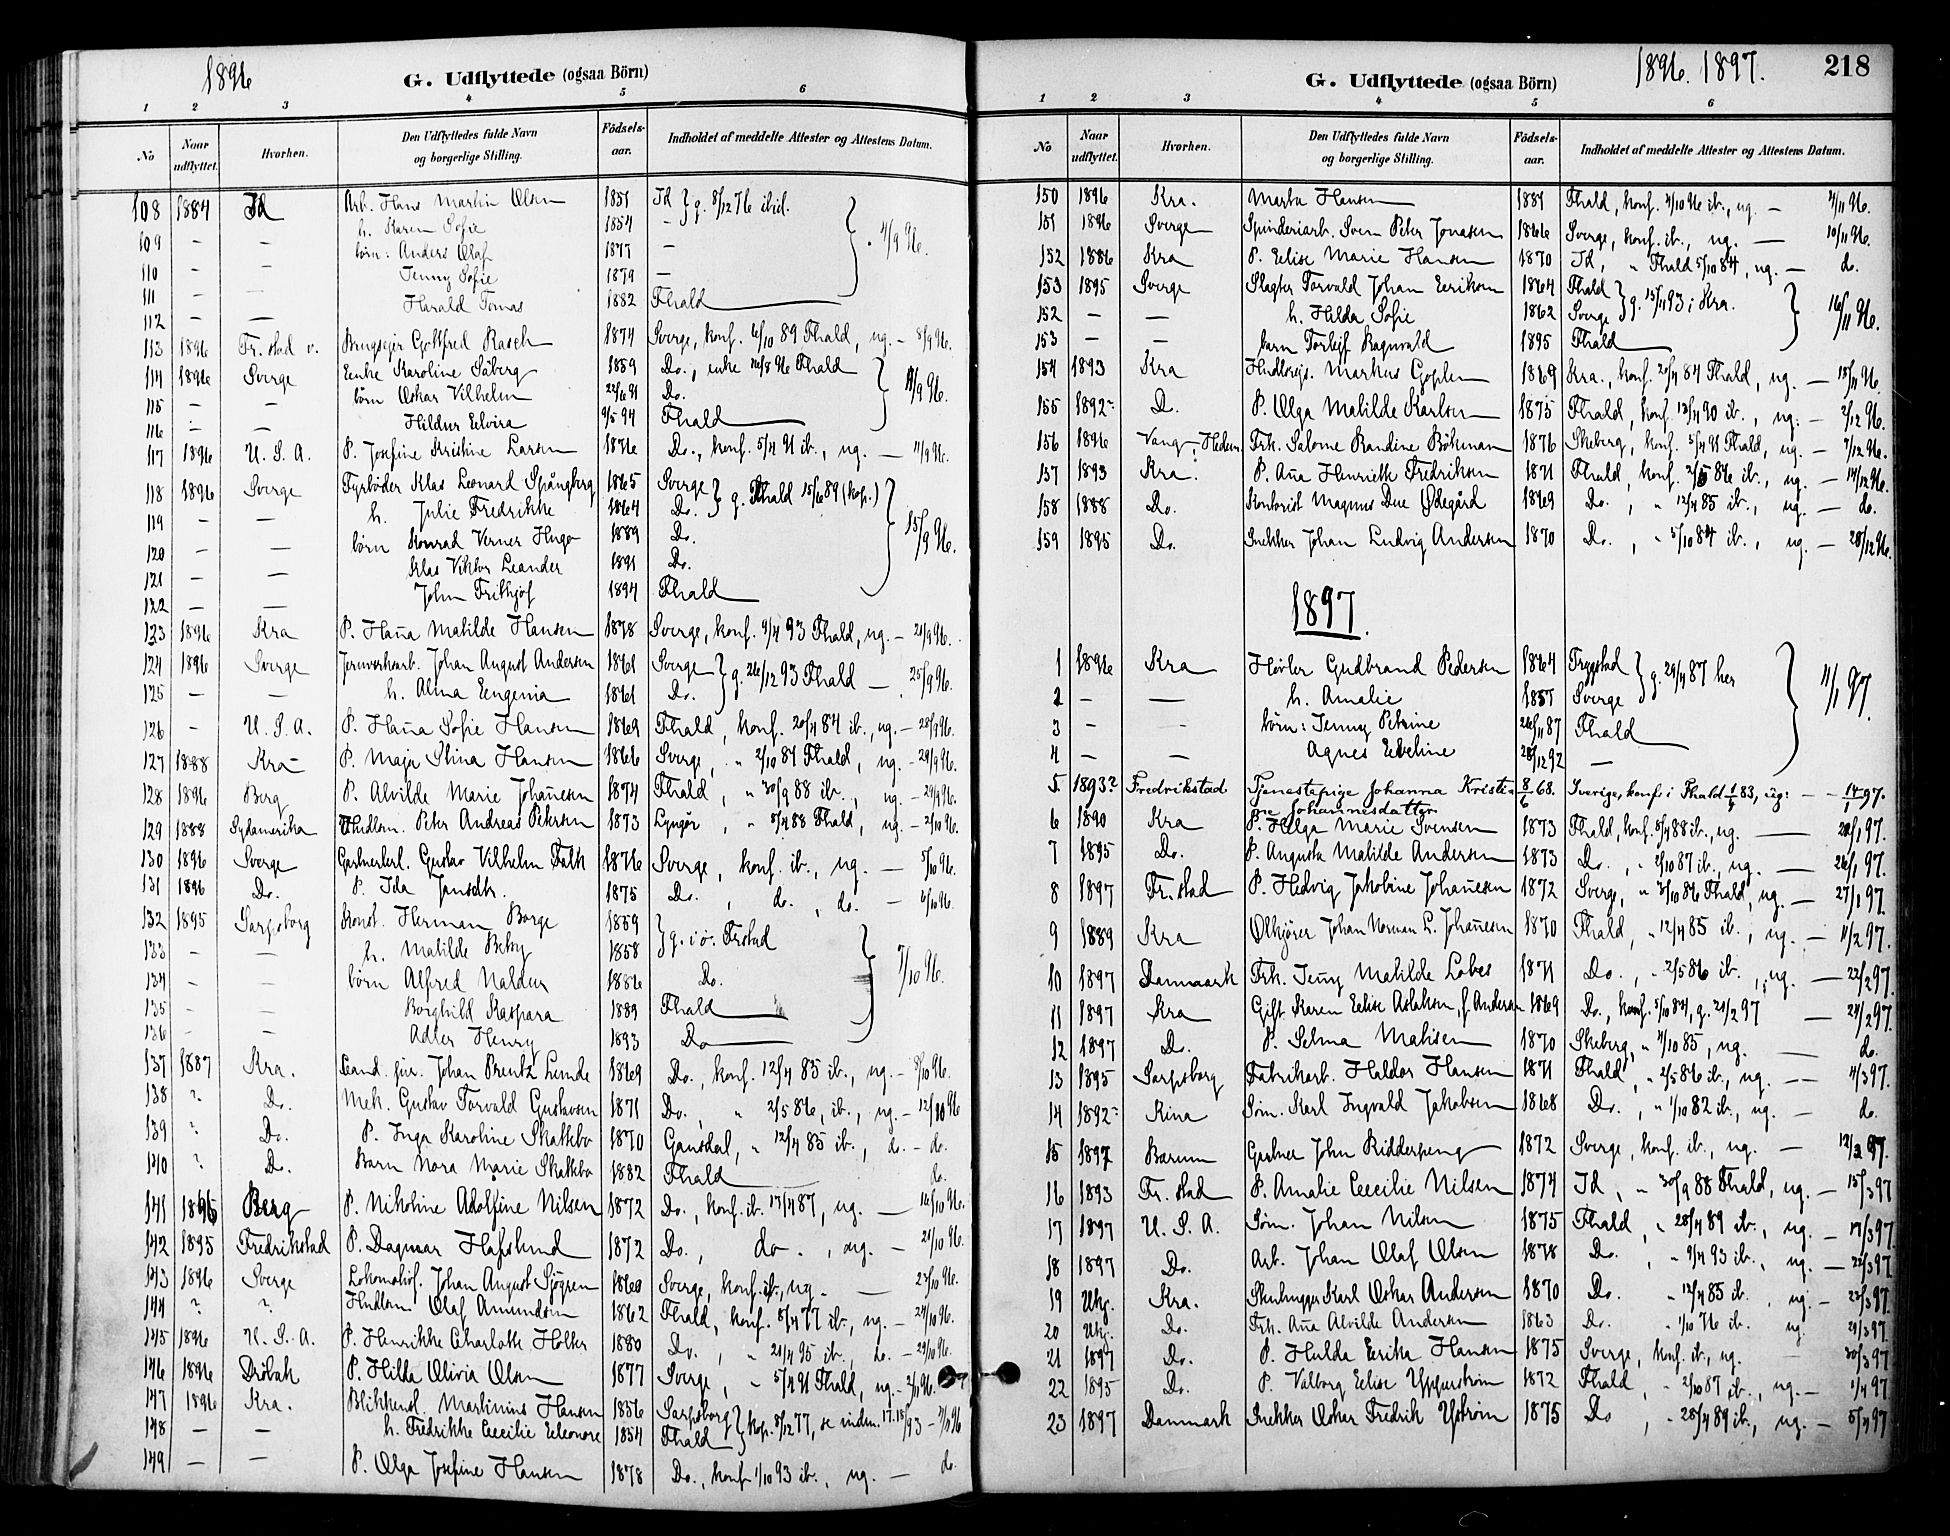 1896
G. Udflyttede (ogsaa Börn)
1 2 3 4 5 6
No Naar udflyttet. Hvorhen. Den Udflyttedes fulde Navn og borgerlige Stilling. Födsels-aar. Indholdet af meddelte Attester og Attestens Datum.
108 1884 Id Arb. Hans Martin Olsen 1851 Id g. 8/12 76 ibid.
109 — — h. Karen Sofie 1854 —
110 — — börn: Anders Olaf 1877 — 4/9 96.
111 — — Jenny Sofie 1879 —
112 — — Harald Tomas 1882 Fhald
113 1896 Fr.stad v. Gottfred Rasch 1874 Sverge, konf. 6/10 89 Fhald, ug. — 8/9 96.
114 1896 Sverge Enke Karoline Såberg 1859 Do., enke Fhald
115 — — börn Oskar Vilhelm Do.
116 — — Hildur Elvira 9/5 94 Fhald
117 1896 U. S. A. P. Josefine Kristine Larsen 1876 Do., konf. 5/4 91 ib., ug. — 11/9 96.
118 1896 Sverge Fyrböder Klas Leonard Spångberg 1865 Sverge g. Fhald 15/6 89 (kop.)
119 — — h. Julie Fredrikke 1864 Do.
120 — — börn Konrad Verner Hugo 1889 Do. 15/9 96.
121 — — Klas Viktor Leander 1891 Do.
122 — — John Frithjof 1894 Fhald
123 1896 Kra P. Hana Matilde Hansen 1878 Sverge, konf. 9/4 93 Fhald, ug. — 21/9 96.
124 1896 Sverge Jernverksarb. Johan August Andersen 1861 Sverge g. 26/12 93 Fhald — 25/9 96.
125 — — h. Alma Eugenia 1861 Do.
126 — U. S. A. P. Hana Sofie Hansen 1869 Fhald, konf. 20/4 84 ib., ug. — 28/9 96.
127 1888 Kra P. Maja Stina Hansen 1866 Sverge, " 2/10 81 Fhald, ug. — 29/9 96.
128 1896 Berg P. Alvilde Marie Johanesen 1874 Fhald, " 30/9 88 ib., ug. — 29/9 96.
129 1888 Sydamerika Hndlsm. Peter Andreas Petersen 1873 Lyngör, " 8/4 88 Fhald, ug. — 2/10 96.
130 1896 Sverge Gartnerlærl. Gustav Vilhelm Falk 1876 Sverge, konf. ib., ug. — 5/10 96.
131 1896 Do. P. Ida Jansdtr. 1875 Do., do., do. — 6/10 96.
132 1895 Sarpsborg Konst. Herman Borge 1859 g. i ö. Frstad
133 — — h. Matilde Betsy 1858
134 — — börn Alfred Haldur 1886 Do. 7/10 96.
135 — — Borghild Kaspara 1889 Fhald
136 — — Adler Henry 1893 Do
137 1887 Kra. Cand. jur. Johan Brentz Lunde 1869 Do., konf. 12/4 85 ib., ug. — 8/10 96.
138 ? Do. Mek. Gustav Torvald Gustavsen 1871 Do., " 2/5 86, ib., ug. — 12/10 96
139 ? Do. P. Inga Karoline Skattebo 1870 Gausdal, " 12/4 85 ib., do. — do.
140 ? Do. Barn Nora Marie Skattebo 1882 Fhald do.
141 1896 Berg P. Nikoline Adolfine Nilsen 1872 Do., konf. ib. 17/4 87, ug. — 16/10 96.
142 1895 Fredrikstad P. Dagmar Hafslund 1872 Do., do., ug. — 21/10 96.
143 1896 Sverge Lokomotivf. Johan August Sjögren 1860 Sverge, konf. ib., ug. — 23/10 96.
144 ? ? Hndlsm Olaf Amundsen 1862 Fhald, konf. 8/4 77 ib., ug. — 24/10 96.
145 1896 U. S. A. P. Henrikke Charlotte Holter 1880 Do., " 21/4 95 ib., do. — 29/10 96.
146 1896 Dröbak P. Hilda Olivia Olsen 1877 Sverge, " 5/4 91 Fhald, ug. — 2/11 96.
147 1896 Kra. Blikkensl. Martinius Hansen 1856 Sarpsborg kop. 8/12 77, se indm. 17.18/93 — 3/11 96
148 — — h. Fredrikke Cecilie Eleonore 1854 Fhald
149 — — P. Olga Josefine Hansen 1878 Do., konf 1/10 93 ib., ug. — do.
1896. 1897. 218
G. Udflyttede (ogsaa Börn)
1 2 3 4 5 6
No Naar udflyttet. Hvorhen. Den Udflyttedes fulde Navn og borgerlige Stilling. Födsels-aar. Indholdet af meddelte Attester og Attestens Datum.
150 1896 Kra. Marta Hansen 1881 Fhald, konf. 4/10 96 ib., ug. — 4/11 96.
151 1896 Sverge Spinderiarb. Sven Peter Jonasen 1866 Sverge, konf. ib., ug. — 10/11 96.
152 1886 Kra P. Elise Marie Hansen 1870 Id, " Fhald 5/10 84, ug. — do.
153 1895 Sverge Slagter Torvald Johan Eriksen 1864 Fhald g. 15/11 93 i Kra.
152 — — h. Hilda Sofie 1862 Sverge 16/11 96.
153 — — barn Torleif Ragnvald 1895 Fhald
154 1893 Kra Hndlsrejs. Markus Goplen 1869 Kra., konf. 20/4 84 Fhald, ug. — 18/11 96.
155 1892? D. P. Olga Matilde Karlsen 1875 Fhald, konf. 13/4 90 ib., ug. — 2/12 96.
156 1896 Vang, Hedem. Frk. Salome Randine Bökman 1876 Skeberg, konf. 5/4 91 Fhald, ug. — 7/12 96.
157 1893 Kra. P. Ana Henriette Fredriksen 1871 Fhald, konf. 2/5 86 ib., ug. — 14/12 96.
158 1888 Do. Kontorist Magnus Due Ödegård 1869 Do., " 12/4 85 ib., ug. — do.
159 1895 Do. Snekker Johan Ludvig Andersen 1870 Do., " 5/10 84 ib., ug. — 28/12 96.
1897.
1 1896 Kra Hövler Gudbrand Pedersen 1864 Trygstad g. 29/4 87 her
2 — — h. Amalie 1857 Sverge 11/1 97.
3 — — börn: Jenny Petrine 26/11 87 Fhald
4 — — Agnes Eveline 28/12 92 —
5. 1893? Fredrikstad Tjenestepige Johanna Kristine Johannesdatter 8/6 68. Sverige, konf. i Fhald 83, ug: — 14/1 97.
6 1890 Kra P. Helga Marie Svensen 1873 Fhald, konf. 8/4 88 ib., ug. — 97.
7 1895 Do. P. Augusta Matilde Andersen 1873 Do., " 2/10 87 ib., ug. — 26/1 97.
8 1897 Fr.stad P. Hedvig Jakobine Johanesen 1872 Sverge, " 3/10 86 Fhald, ug. — 27/1 97.
9 1889 Kra Ölkjörer Johan Herman L. Johanesen 1870 Fhald, " 12/4 85 ib., ug. — 11/2 97.
10 1897 Danmark Frk. Jenny Matilde Lobes 1871 Do., " 2/5 86 ib., ug — 22/2 97.
11 1897 Kra Gift. Karen Elise Aslaksen, f. Andersen 1869 Do., konf. 5/10 84, g. 21/2 97 — 24/2 97.
12 1897 Do. P. Selma Matisen 1870 Skeberg, " 4/10 85, ug. — do.
13 1895 Sarpsborg Fabrikarb. Haldor Hansen 1871 Fhald " 2/5 86 ib., ug. — 4/3 97.
14 1892? Kina Söm. Karl Ingvald Jakobsen 1868 Do., " 1/10 82 ib., ug. — do.
15 1897 Bærum Gartner John Ridderspang 1872 Sverge, konf. ib., ug. — 12/3 97.
16 1893 Fr. stad P. Amalie Cecilie Nilsen 1874 Id, " 30/9 88 Fhald, ug. — 15/3 97
17 1897 U. S. A. Söm. Johan Nilsen 1875 Fhald, " 28/4 89 ib., ug. — 17/3 97.
18 1897 Do. Arb. Johan Olaf Olsen 1878 Do., " 9/4 93 ib., ug. — 22/3 97
19 Ukj. Kra. Stenhugger Karl Oskar Andersen 1870 Do. " 12/4 85 ib., ug. — 22/3 97.
20 Ukj. Do. Frk. Ana Alvilde Andersen 1863 Do. " 1/10 76 ib. ug. 29/3 97.
21 1897 Do. P. Hulda Erika Hansen 1875 Sverge, konf. ib., ug. — 30/3 97
22 1895 Do. P. Valborg Elise Upperström 1872 Fhald, " 2/10 87 ib., ug. — 1/4 97
23 1897 Danmark Snekker Oskar Fredrik Yström 1875 Do, " 28/4 89 ib., ug. — 5/4 97